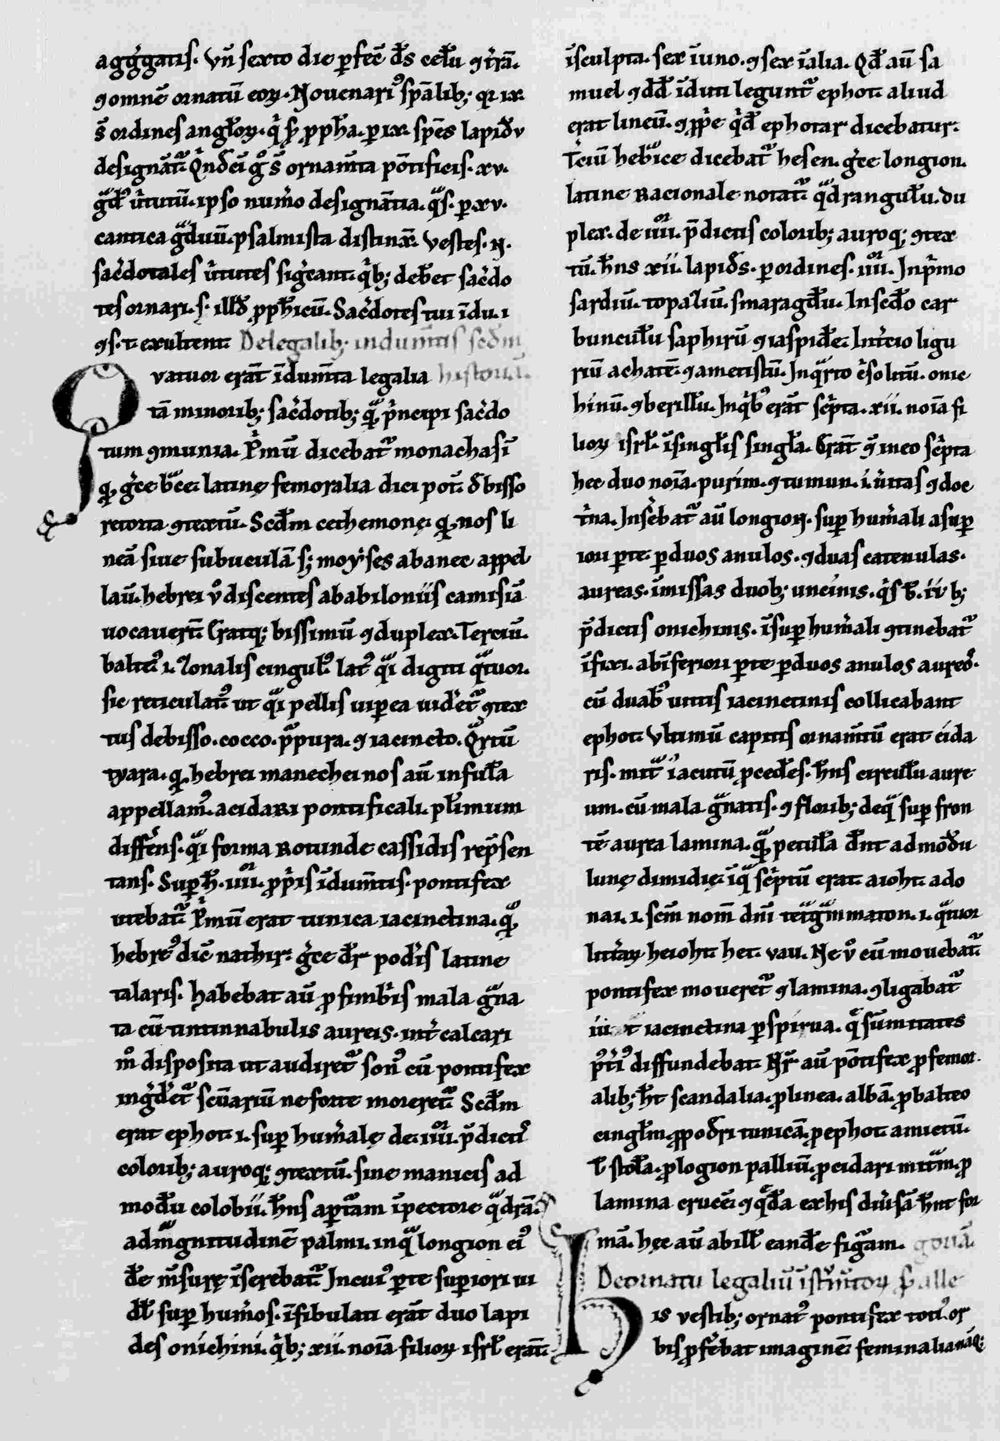 aggregatis. Vñ sexto die ꝑfec̃ d̃s celũ ⁊ t̃rã.
⁊ omnẽ ornatũ eoꝝ. Nouenari᷒ sp̃alib; qr ix.
s̃ ordines angl̃oꝝ. q̇ ꝓph̃a. ꝑ ix. sp̃es lapid̃ꝝ
designãt᷑. ornam̃ta põtificis. xv.
ip̃so num̃o designãtia. q̃s. ꝑ xv.
cantica g̃duũ. psalmista distinx̃. Vestes. N.
sac̃dotales ũtutes sig̃cant. q̇b; deb̃et sac̃do
tes ornari. s. ill̃d ꝓph̃icũ. Sac̃dotes tui ĩdu. i
⁊ s. t. exultent. De legalib; indum̃tis sc̃dm
Quatuor erãt ĩdum̃ta legalia historiã.
tã minorib; sac̃dotib; q̃ p̃ncipi sac̃do
tum ⁊munia. P̃mũ dicebat᷑ monachasĩ
latine femoralia dici pot̃. d̃ bisso
retorta ⁊textũ. Sc̃dm cethemone. q̃ nos li
neã siue subuculã s; moyses abanec appel
lat̃. hebrei ũ discentes ababiloniis camisiã
uocauer̃t. Eratq; bissinũ ⁊ duplex. Terciũ.
balte᷒ .i. zonalis cingul᷒ lat᷒ q̃i digiti q̃tuor.
sic reticulat᷒ ut q̃i pellis uiꝑea uid̃et᷑ ⁊tex
tus de bisso. cocco. p̃pura. ⁊ iacincto. Q̃rtũ
tyara. q̃ hebrei manechei nos aũt infũla
appellam᷒. acidari pontificali. pl̃imum
diff̃ens. q̃i forma rotunde cassidis rep̃sen
tans. Suꝑ h̃. iiii. ꝓp̃ris ĩdum̃tis. pontifex
utebat᷑. P̃mũ erat tunica iacinctina. q̃
hebre᷒ dic̃ nathir. g̃ce d̃r pod̃is latine
talaris. habebat aũ ꝓ fimb̃is mala g̃na
ta cũ tintinnabulis aureis. int̃ calcari
m̃ disposita ut audiret᷑ son᷒ cũ pontifex
ing̃d̃et᷑ sc̃uariũ ne forte moreret᷑. Sc̃dm
erat ephot .i. suꝑ hum̃ale de iiii. p̃dict᷒
colorib; auroq; ⁊textũ. sine manicis ad
modũ colobii. h̃ns aꝑtãm ĩ pectore q̃drã
ad m̃gnitudinẽ palmi. in q̃ longion ei᷒
de m̃sure ĩserebat᷑. In cui᷒ ꝑte suꝑiori ui
dl̃ suꝑ hum̃os. ĩfibulati erãt duo lapi
des onichini. q̇b; xii. noĩa filioꝝ isrl̃ erãt
ĩsculpta. sex ĩ uno. ⁊ sex ĩ alia. Qd̃ aũ sa
muel ⁊ d̃d ĩduti legunt᷑ ephot. aliud
erat lineũ. ⁊ ꝓp̃e q̃d̃ ephotar dicebatur.
T̃ciũ heb̃ice dicebat᷑ hesen. g̃ce longion.
latine racionale notat᷑ q̃drangul̃u. du
plex. de iiii. p̃dictis colorib; auroq; ⁊tex
tũ. h̃ns xii. lapid̃s. ꝑ ordines. iiii. In p̃mo
sardiũ. topaziũ. smaragdũ. In sc̃do car
bunculũ saphirũ ⁊ iaspidẽ. In t̃cio ligu
riũ achatẽ. ⁊ ametistũ. In q̃rto c̃solitũ. onic
hinũ. ⁊ berillũ. In q̇b᷒ erãt sc̃pta. xii. noĩa fi
lioꝝ isrl̃. ĩ singl̃is singl̃a. Erãt q̃ in eo sc̃pta
hec duo noĩa. purim. ⁊ tumun. i. ũitas ⁊ doc
t̃na. Ins̃ebat᷑ aũ longion. suꝑ hum̃ali a suꝑ
iori ꝑte. ꝑ duos anulos. ⁊ duas catenulas.
aureas. ĩmissas duob; uncinis. q̇ s̃b. ii. b;
p̃dictis onichinis. ĩ suꝑ hum̃ali ⁊tinebat᷑
ĩfixi. ab ĩferiori ꝑte ꝑ duos anulos aureos.
cũ duab᷒ uittis iacinctinis collicabant
ephot. Vltimũ capitis ornam̃tũ erat cida
ris. mit᷑ ĩ acutũ ꝓced̃es. h̃ns circul̃u aure
um. cũ mala g̃natis. ⁊ florib; deq̃ suꝑ fron
tẽ aurea lamina. q̃ petula d̃nt ad modũ
lune dimidie. ĩ q̃ sc̃ptũ erat. aioht. ado
nai .i. sc̃m nom̃ dñi tet̃g̃mmaton .i. q̃tuor
litt̃aꝝ heioht. het. vau. Ne ũ eũ mouebat᷑
pontifex moueret᷑ ⁊ lamina. ⁊ligabat᷑
iacinctina sũmitates
diffundebat. aũ põtifex ꝓ femor.
alib; h̃t scandalia. ꝓ linea. albã. ꝓ balteo
cingl̃m. ꝓ pod̃ri tunicã. ꝓ ephot. amictũ.
t̃ stola. ꝓ logion palliũ. ꝓ cidari mit̃m. ꝓ
lamina crucẽ. ⁊ q̃d̃a ex his diũsã h̃nt for
mã. hec aũ ab ill̃ eandẽ fig̃am. goriã.
De ornatu legaliũ ĩst̃m̃toꝝ s̃ alle
His vestib; ornat᷒ pontifex toti᷒ or
bis p̃fẽbat imaginẽ. feminalia